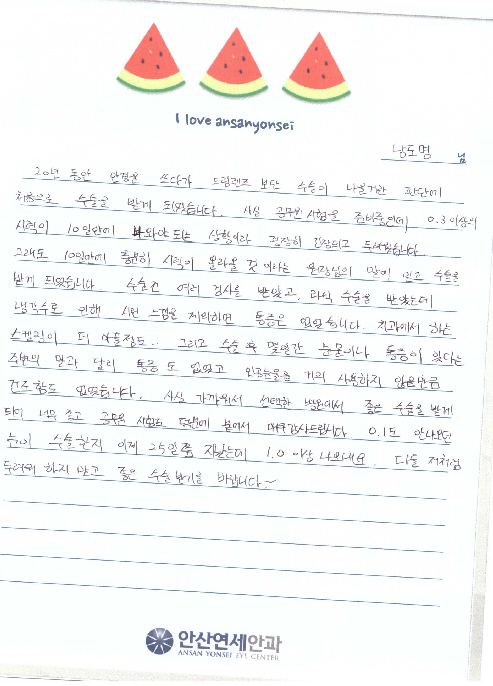 I love ansanyonsei
남도명 님
20년 동안 안경을 쓰다가 드림렌즈 보단 수술이 나을거란 판단에
처음으로 수술을 받게 되었습니다. 사실 공무원 시험을 준비중인데 0.3 이상의
시력이 10일안에 나와야 되는 상황이라 굉장히 긴장되고 두려웠습니다
그래도 10일이면 충분히 시력이 올라올 것 이라는 원장님의 말이 믿고 수술을
받게 되었습니다. 수술전 여러 검사를 받았고, 라식 수술을 받았는데
냉각수로 인해 시린 느낌을 제외하면 통증은 없었습니다. 치과에서 하는
스켈링이 더 아플정도.. 그리고 수술 후 몇일간 눈물이나 통증이 있다는
주변의 말과 달리 통증도 없었고 인공눈물을 거의 사용하지 않을만큼
건조함도 없었습니다. 사실 가까워서 선택한 병원에서 좋은 수술을 받게
되어 너무 좋고 공무원 시험도 단번에 붙어서 매우 감사드립니다 0.1도 안나오던
눈이 수술한지 이제 25일쯤 지났는데 1.0 이상 나오네요. 다들 저처럼
두려워 하지 말고 좋은 수술 받기를 바랍니다~
안산연세안과
ANSAN YONSEI EYE CENTER